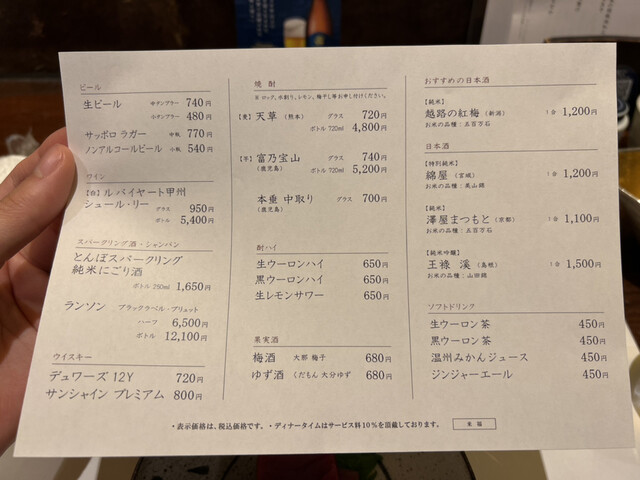 ビール
生ビール 中タンブラー 740円
小タンブラー 480円
サッポロ ラガー 中瓶 770円
ノンアルコールビール 小瓶 540円
ワイン
【白】ルバイヤート甲州
シュール・リー グラス 950円
ボトル 5,400円
スパークリング酒・シャンパン
とんぼスパークリング
純米にごり酒
ボトル 250ml 1,650円
ランソン ブラックラベル・ブリュット
ハーフ 6,500円
ボトル 12,100円
ウイスキー
デュワーズ 12Y 720円
サンシャイン プレミアム 800円
焼酎
※ ロック、水割り、レモン、梅干し等お申し付けください。
【麦】天草(熊本) グラス 720円
ボトル 720ml 4,800円
【芋】富乃宝山 グラス 740円
(鹿児島) ボトル 720ml 5,200円
本垂 中取り グラス 700円
(鹿児島)
酎ハイ
生ウーロンハイ 650円
黒ウーロンハイ 650円
生レモンサワー 650円
果実酒
梅酒 大那 梅子 680円
ゆず酒 くだもん 大分ゆず 680円
おすすめの日本酒
【純米】
越路の紅梅(新潟) 1合 1,200円
お米の品種:五百万石
日本酒
【特別純米】
綿屋(宮城) 1合 1,200円
お米の品種:美山錦
【純米】
澤屋まつもと(京都) 1合 1,100円
お米の品種:五百万石
【純米吟醸】
王祿 渓(島根) 1合 1,500円
お米の品種:山田錦
ソフトドリンク
生ウーロン茶 450円
黒ウーロン茶 450円
温州みかんジュース 450円
ジンジャーエール 450円
・表示価格は、税込価格です。・ディナータイムはサービス料10%を頂戴しております。